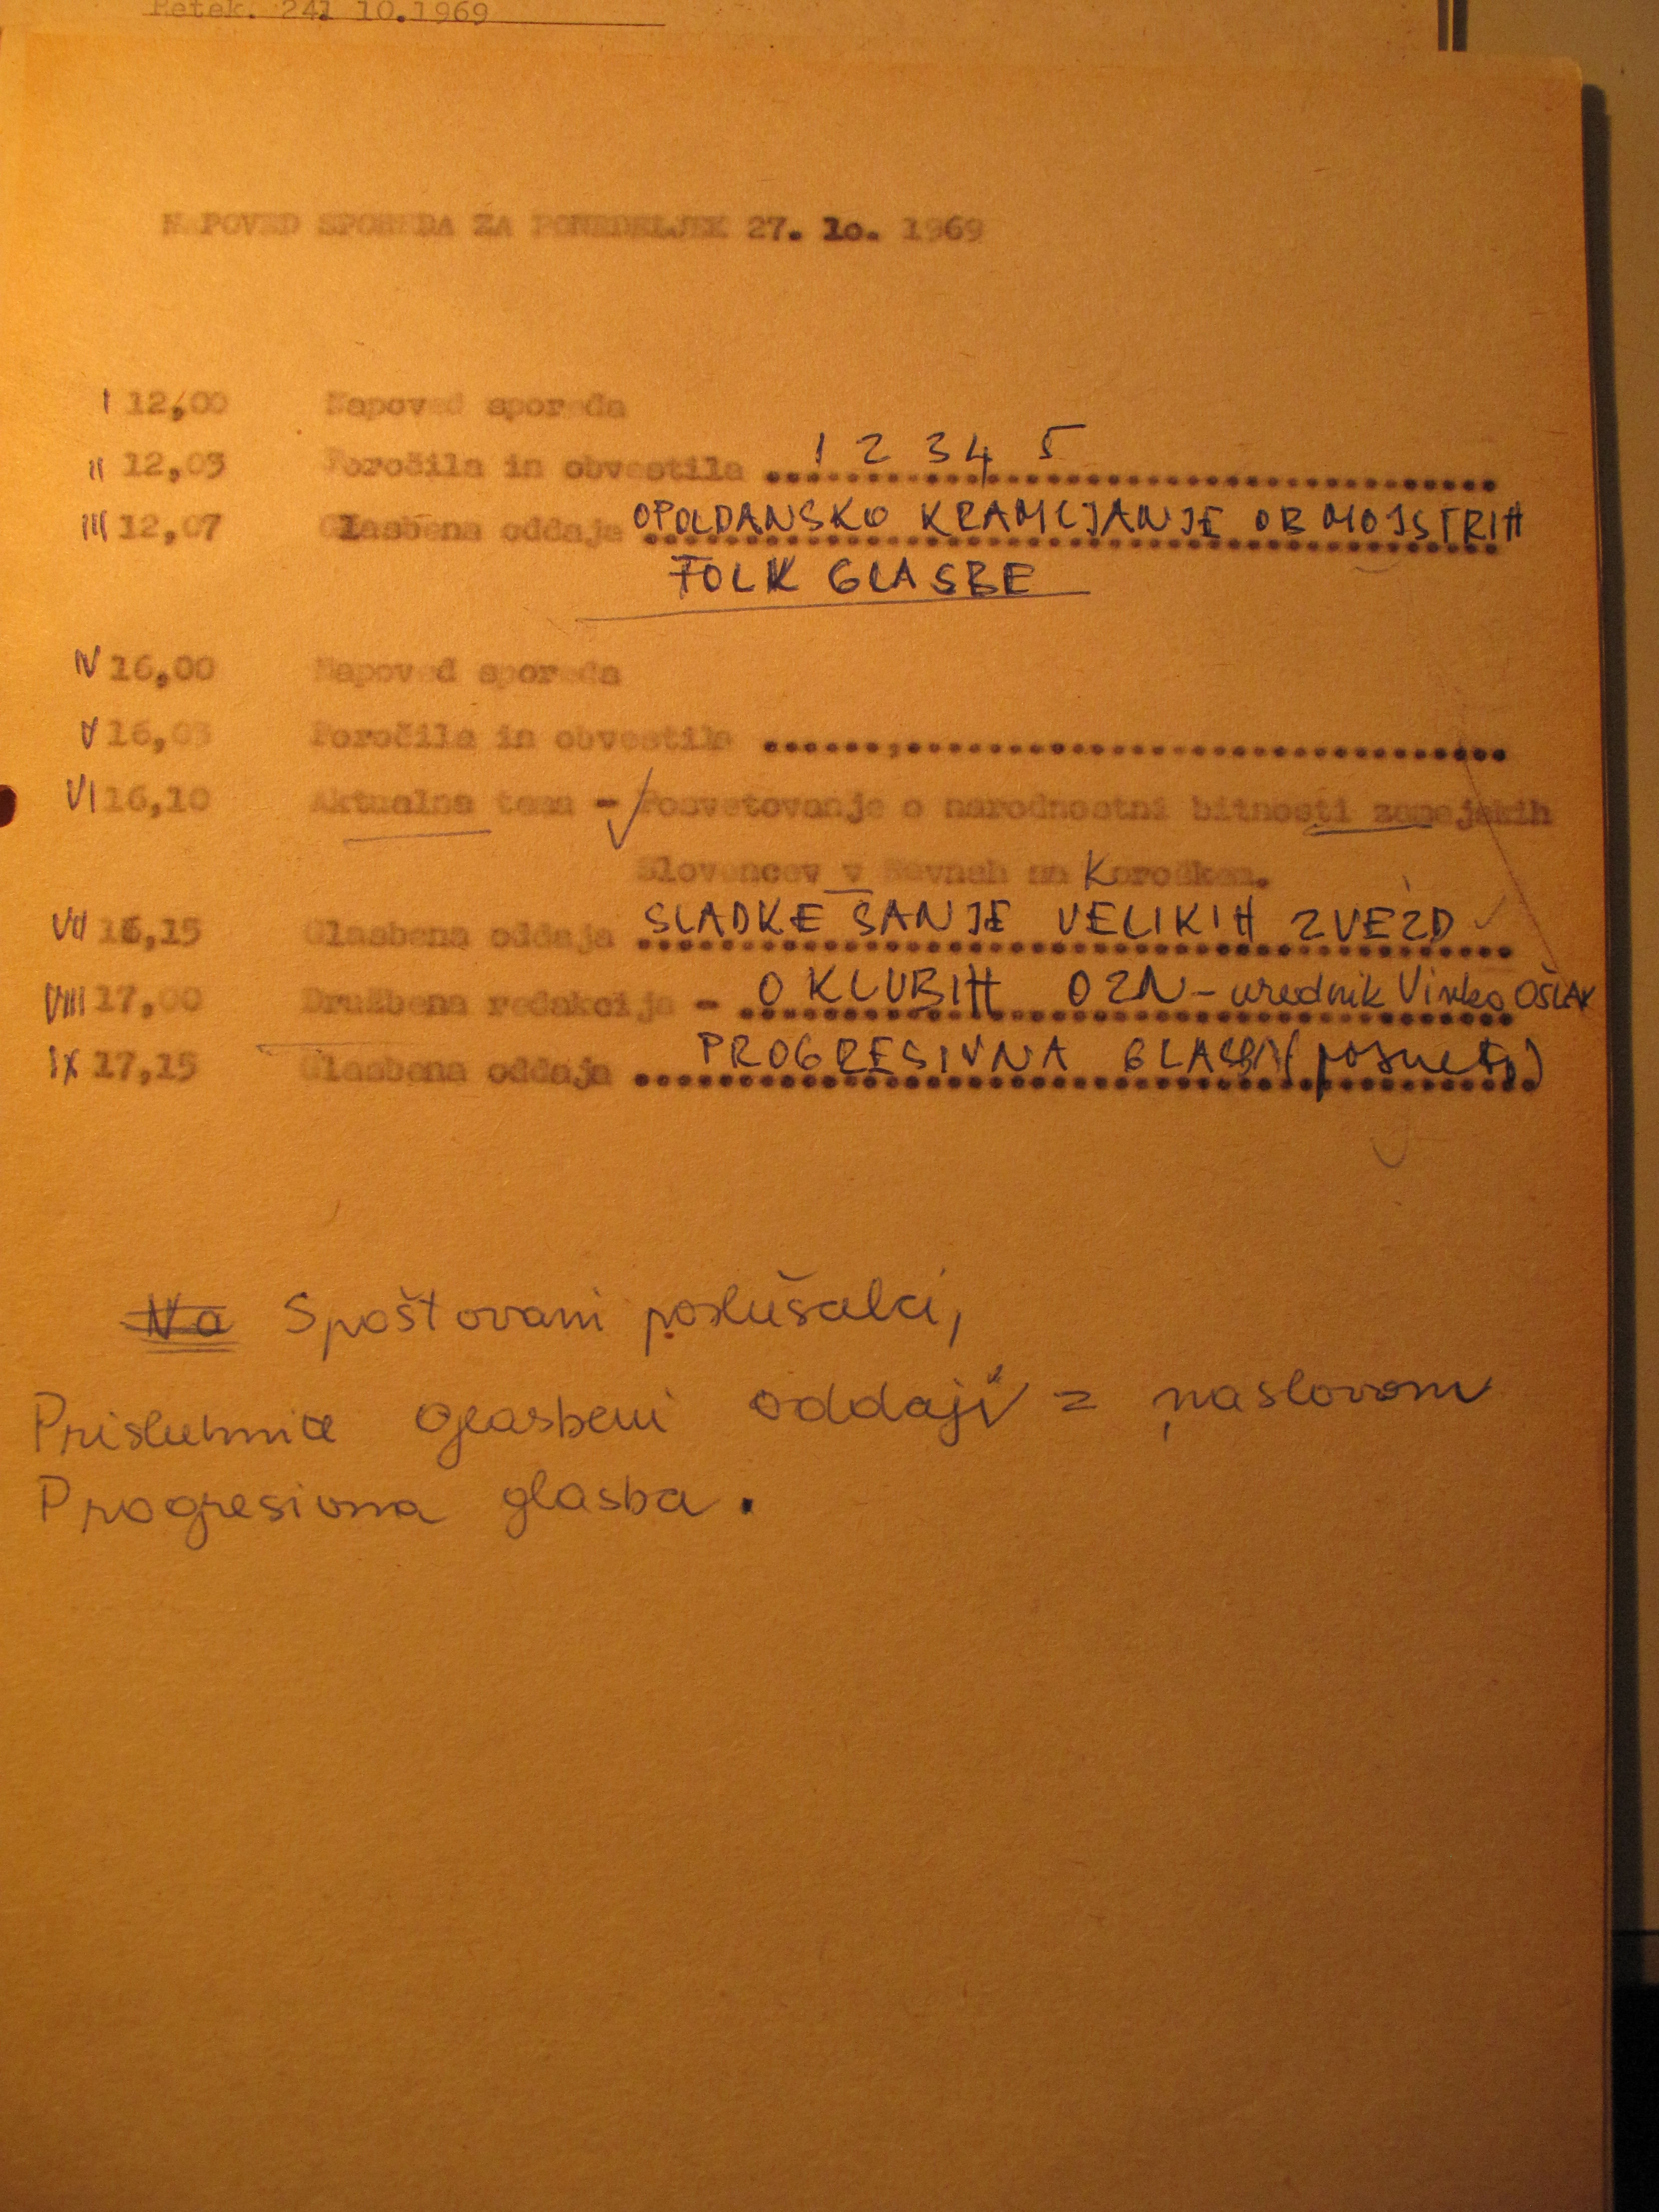 Petek. 24. 10.1969
NAPOVED SPOREDA ZA PONEDELJEK 27. 10. 1969
I 12,00 Napoved sporeda
II 12,03 Poročila in obvestila .... 1 2 3 4 5
III 12,07 Glasbena oddaja OPOLDANSKO KRAMLJANJE OB MOJSTRIH
FOLK GLASBE
IV 16,00 Napoved sporeda
V 16,03 Poročila in obvestila ....
VI 16,10 Aktualna tema - Posvetovanje o narodnostni bitnosti zamejskih
Slovencev v Ravnah na Koroškem.
VII 16,15 Glasbena oddaja SLADKE SANJE VELIKIH ZVEZD
VIII 17,00 Družbena redakcija - O KLUBIH OZN - urednik Vinko OŠLAK
IX 17,15 Glasbena oddaja PROGRESIVNA GLASBA (posnetki)
Na Spoštovani poslušalci,
Prisluhnite glasbeni oddaji z naslovom
Progresivna glasba.